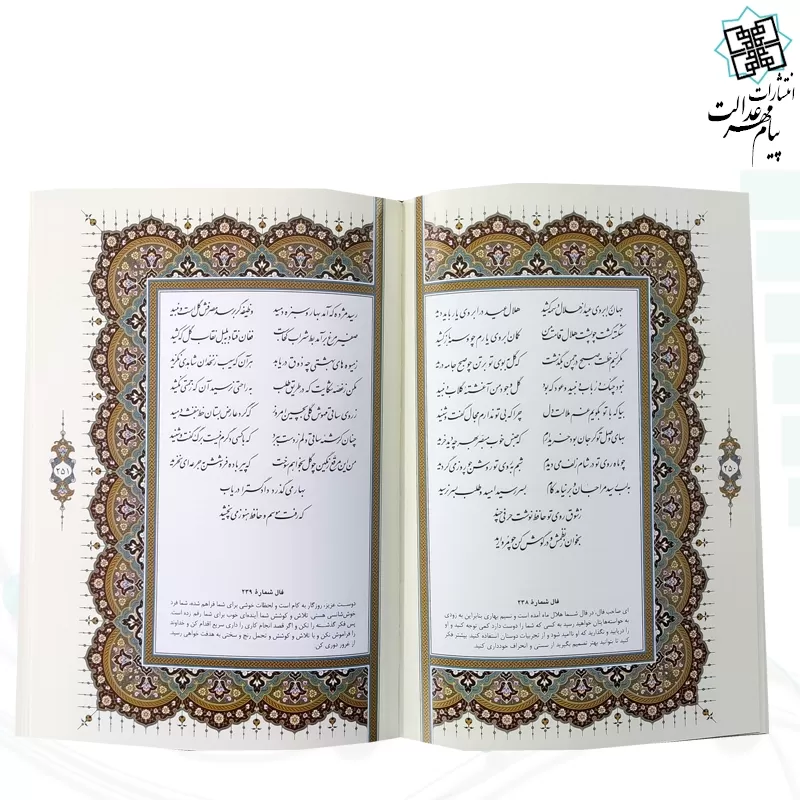 انتشارات
پیام مهر عدالت
جهان بر ابروی عید از هلال وسمه کشید هلال عید در ابروی یار باید دید
شکسته گشت چو پشت هلال قامت من کمان ابروی یارم چو وسمه بازکشید
مگر نسیم خطت صبح در چمن بگذشت که گل به بوی تو بر تن چو صبح جامه درید
نبود چنگ و رباب و نبید و عود که بود گل وجود من آغشته گلاب و نبید
بیا که با تو بگویم غم ملالت دل چرا که بی تو ندارم مجال گفت و شنید
بهای وصل تو گر جان بود خریدارم که جنس خوب مبصر به هر چه دید خرید
چو ماه روی تو در شام زلف می‌دیدم شبم به روی تو روشن چو روز می‌گردید
به لب رسید مرا جان و برنیامد کام به سر رسید امید و طلب به سر نرسید
ز شوق روی تو حافظ نوشت حرفی چند
بخوان ز نظمش و در گوش کن چو مروارید
فال شمارهٔ ۲۳۸
ای صاحب فال، در فال شما هلال ماه آمده است و نسیم بهاری بنابراین به زودی
به خواسته‌هایتان خواهید رسید به کسی که شما را دوست دارد کمی توجه کنید و او
را دریابید و نگذارید که او ناامید شود و از تجربیات دوستان استفاده کنید. بیشتر فکر
کنید تا بتوانید بهتر تصمیم بگیرید. از سستی و انحراف خودداری کنید.
۲۵۰
رسید مژده که آمد بهار و سبزه دمید وظیفه گر برسد مصرفش گل است و نبید
صفیر مرغ برآمد بط شراب کجاست فغان فتاد به بلبل نقاب گل که کشید
ز میوه‌های بهشتی چه ذوق دریابد هر آن که سیب زنخدان شاهدی نگزید
مکن ز غصه شکایت که در طریق طلب به راحتی نرسید آن که زحمتی نکشید
ز روی ساقی مهوش گلی بچین امروز که گرد عارض بستان خط بنفشه دمید
چنان کرشمه ساقی دلم ز دست ببرد که با کسی دگرم نیست برگ گفت و شنید
من این مرقع رنگین چو گل بخواهم سوخت که پیر باده فروشش به جرعه‌ای نخرید
بهار می‌گذرد دادگسترا دریاب
که رفت موسم و حافظ هنوز می نچشید
فال شمارهٔ ۲۳۹
دوست عزیز، روزگار به کام است و لحظات خوشی برای شما فراهم شده، شما فرد
خوش‌شانسی هستی. تلاش و کوشش شما آینده‌ای خوب برای شما رقم زده است.
پس فکر گذشته را نکن و اگر قصد انجام کاری را داری سریع اقدام کن و خداوند
را فراموش نکن و با تلاش و کوشش و تحمل رنج و سختی به هدفت خواهی رسید.
از غرور دوری کن.
۲۵۱